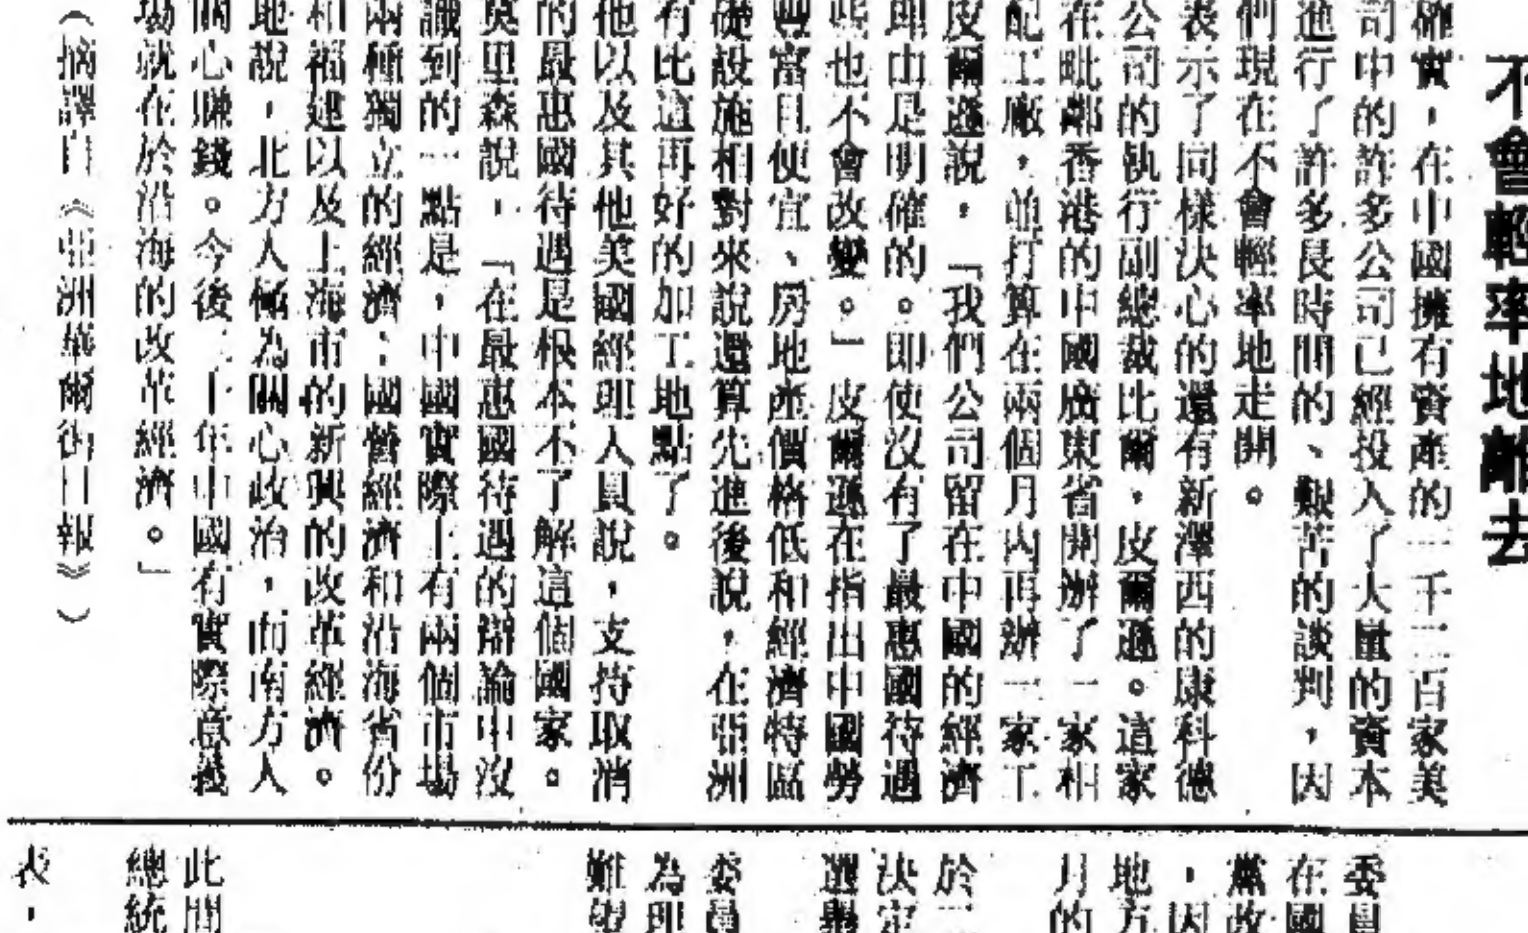 不會輕率地離去
確實，在中國擁有資產的一千二百家美
司中的許多公司已經投入了大量的資本
進行了許多長時間的、艱苦的談判，因
們現在不會輕率地走開。
表示了同樣決心的還有新澤西的康科德
公司的執行副總裁比爾，皮爾遜。這家
在毗鄰香港的中國廣東省開辦了一家相
配工廠，並打算在兩個月內再辦一家工
皮爾遜說，「我們公司留在中國的經濟
理由是明確的。即使沒有了最惠國待遇
些也不會改變。」皮爾遜在指出中國勞
豐富且便宜、房地產價格低和經濟特區
礎設施相對來說還算先進後說，在亞洲
有比這再好的加工地點了。
他以及其他美國經理人員說，支持取消
的最惠國待遇是根本不了解這個國家。
莫里森說，「在最惠國待遇的辯論中沒
識到的一點是，中國實際上有兩個市場
兩種獨立的經濟：國營經濟和沿海省份
和福建以及上海市的新興的改革經濟。
地說，北方人極為關心政治，而南方人
關心賺錢。今後二十年中國有實際意義
場就在於沿海的改革經濟。」
（摘譯自《亞洲華爾街日報》）
委員
在國
黨改
，因
地方
月的
於二
決定
選舉
委員
為理
難望
此間
總統
表，